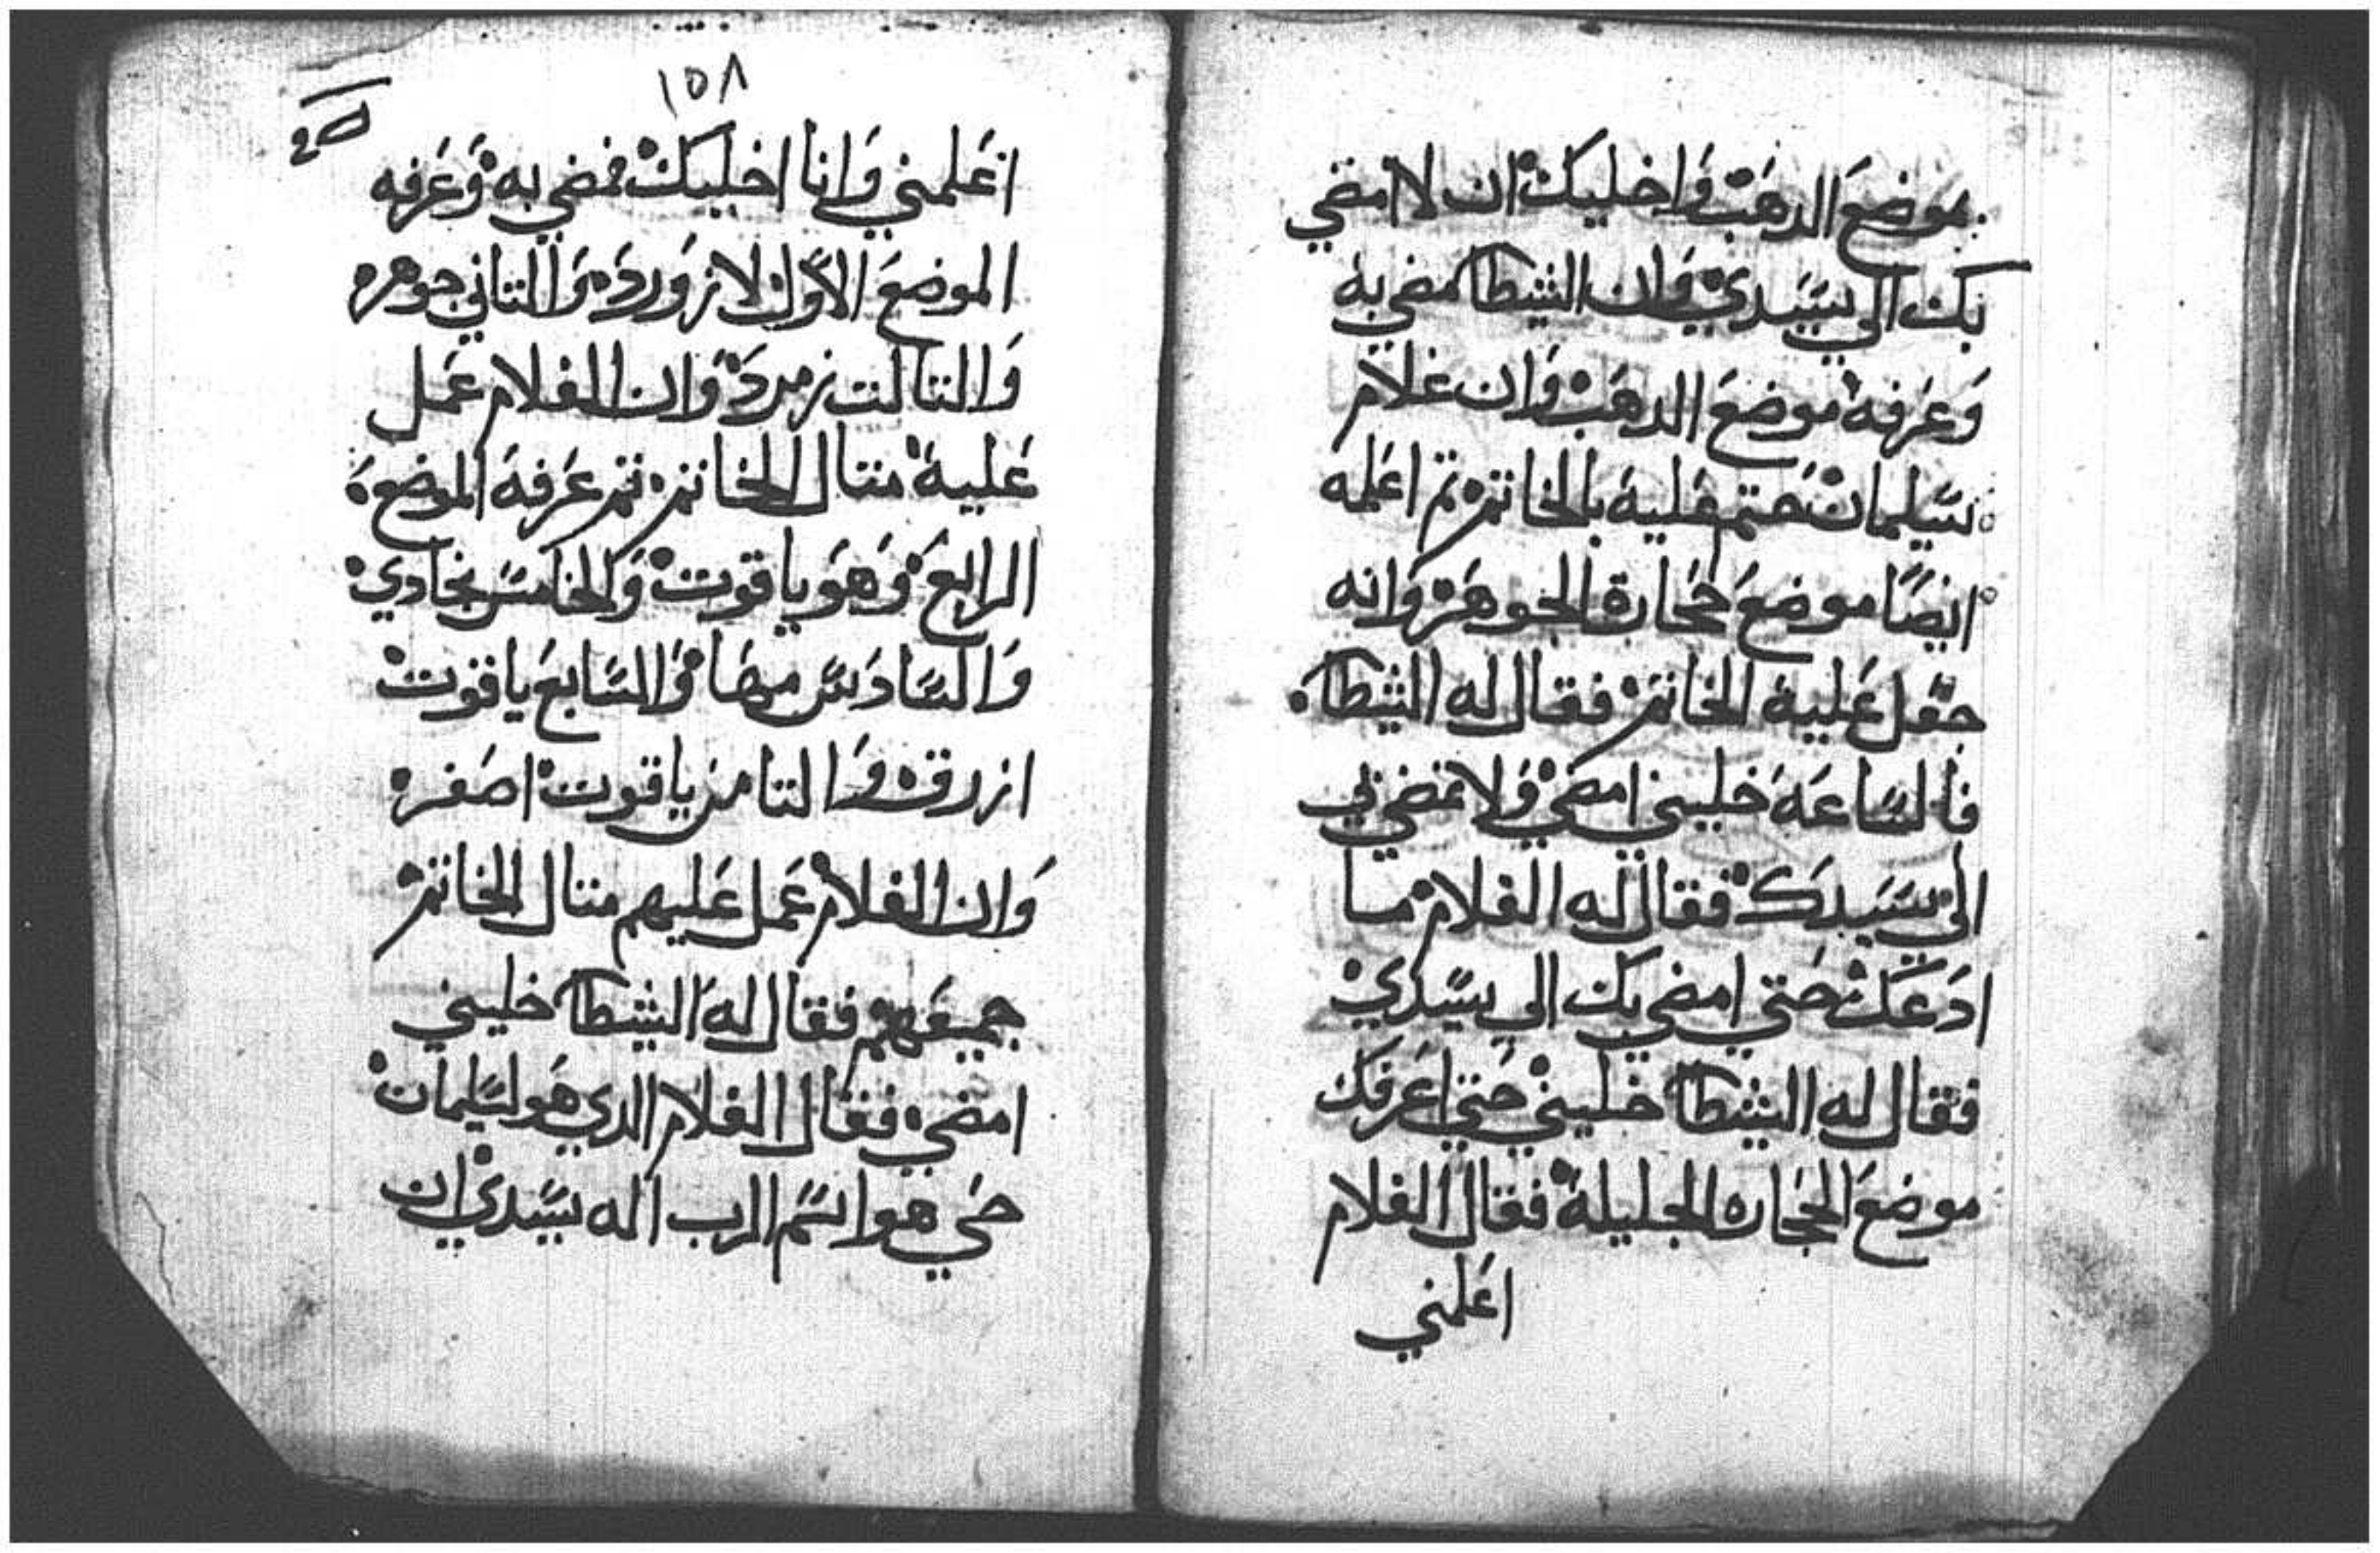 بموضع الدهب واخليك ان لا امضي
بك الي سيدي وان الشيطا مضي به
وعرفه موضع الدهب وان غلام
سليمان ختم عليه بالخاتم تم اعلمه
ايضا موضع حجارة الجوهر وانه
جعل عليه الخاتم فقال له الشيطا
فالساعه خليني امضي ولا تمضي بي
الي سيدك فقال له الغلام ما
ادعك حتي امضي بك الي سيدي
فقال له الشيطا خليني حتي اعرفك
موضع الحجاره الجليلة فقال الغلام
اعلمني
١٥٨
اعلمني وانا اخليك فمضي به وعرفه
الموضع الاول لازورد والتاني جوهر
والتالت زمرد وان الغلام عمل
عليه متال الخاتم تم عرفه الموضع
الرابع وهو ياقوت والخامس بخادي
والسادس مها والسابع ياقوت
ازرق والتامن ياقوت اصفر
وان الغلام عمل عليهم متال الخاتم
جميعهم فقال له الشيطا خليني
امضي فقال الغلام الدي هو لسليمان
حي هو اسم الرب اله سيدي ان